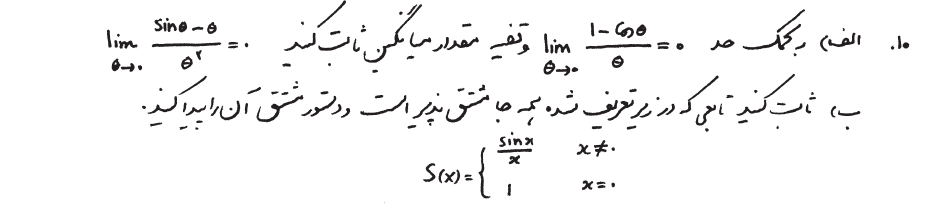 ۱۰. الف) به کمک حد lim θ→۰ (1 - Cosθ)/θ = ۰ و قضیه مقدار میانگین ثابت کنید lim θ→۰ (sinθ - θ)/θ۲ = ۰
ب) ثابت کنید تابعی که در زیر تعریف شده همه جا مشتق پذیر است و دستور مشتق آن را پیدا کنید.
S(x) = { sinx/x x ≠ ۰
1 x = ۰